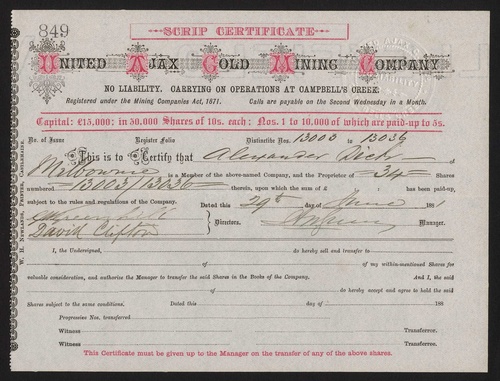 849
SCRIP CERTIFICATE
UNITED AJAX GOLD MINING COMPANY
NO LIABILITY. CARRYING ON OPERATIONS AT CAMPBELL'S CREEK.
Registered under the Mining Companies Act, 1871. Calls are payable on the Second Wednesday in a Month.
Capital: £15,000; in 30,000 Shares of 10s. each; Nos. 1 to 16,000 of which are paid-up to 5s.
No. of Issue Register Folio Distinctive Nos. 13003 to 13036
This is to Certify that Alexander Dick of
Melbourne is a Member of the above-named Company, and the Proprietor of 34 Shares
numbered 13003/13036 therein, upon which the sum of £ : : has been paid-up,
subject to the rules and regulations of the Company. Dated this 29th day of June 1881
David Clifton
Directors. Manager.
W. H. NEWLANDS, PRINTER, CASTLEMAINE.
I, the Undersigned, do hereby sell and transfer to
of of my within-mentioned Shares for
valuable consideration, and authorise the Manager to transfer the said Shares in the Books of the Company. And I, the said
do hereby accept and agree to hold the said
Shares subject to the same conditions. Dated this day of 188
Progressive Nos. transferred
Witness Transferror.
Witness Transferree.
This Certificate must be given up to the Manager on the transfer of any of the above shares.